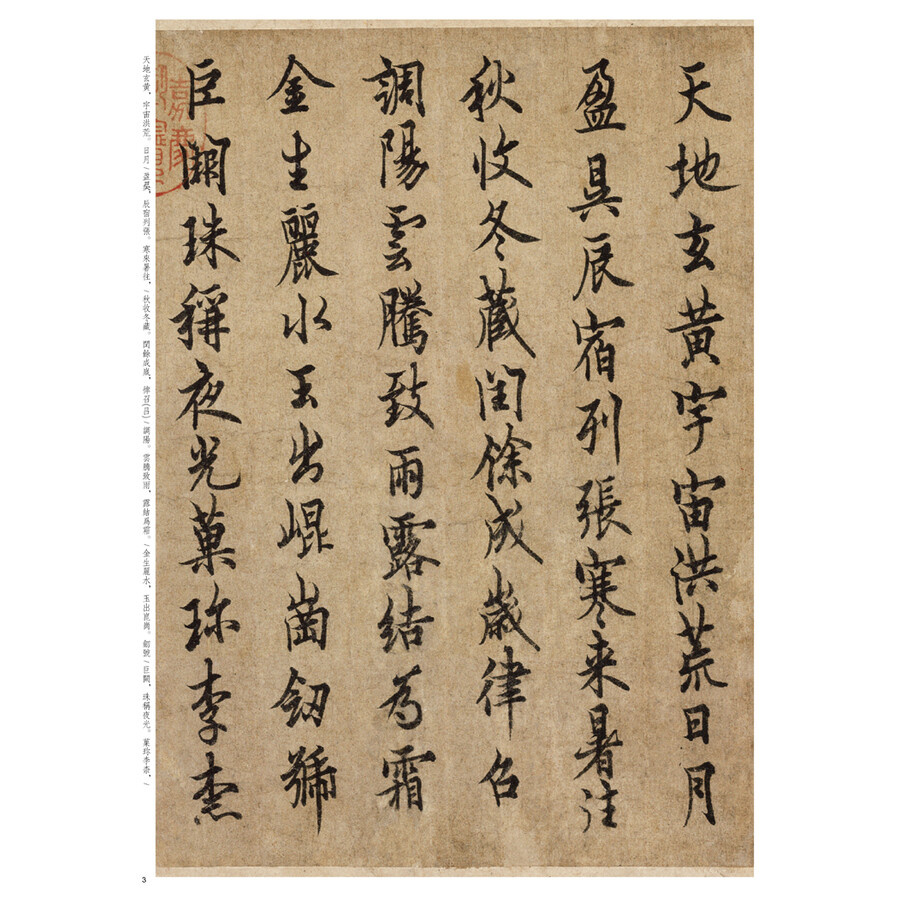 天地玄黃宇宙洪荒日月
盈昃辰宿列張寒来暑往
秋收冬藏閏餘成歲律召
調陽雲騰致雨露結為霜
金生麗水玉出崐崗劒號
巨闕珠稱夜光菓珎李柰
天地玄黃，宇宙洪荒。日月/盈昃，辰宿列張。寒來暑往，/秋收冬藏。閏餘成歲，律召(吕)/調陽。雲騰致雨，露結爲霜。/金生麗水，玉出崑崗。劒號/巨闕，珠稱夜光。菓珎李柰，/
3